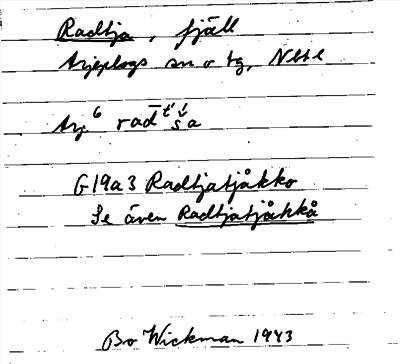 Radtja, fjäll
Arjeplogs sn o tg, Nbtl
Arj⁶ rad̅t́š́a
G19a3 Radtjatjåkko
Se även Radtjatjåhkå
Bo Wickman 1943